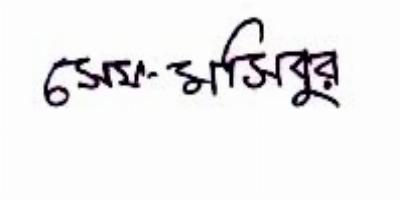 সেখ মসিবুর